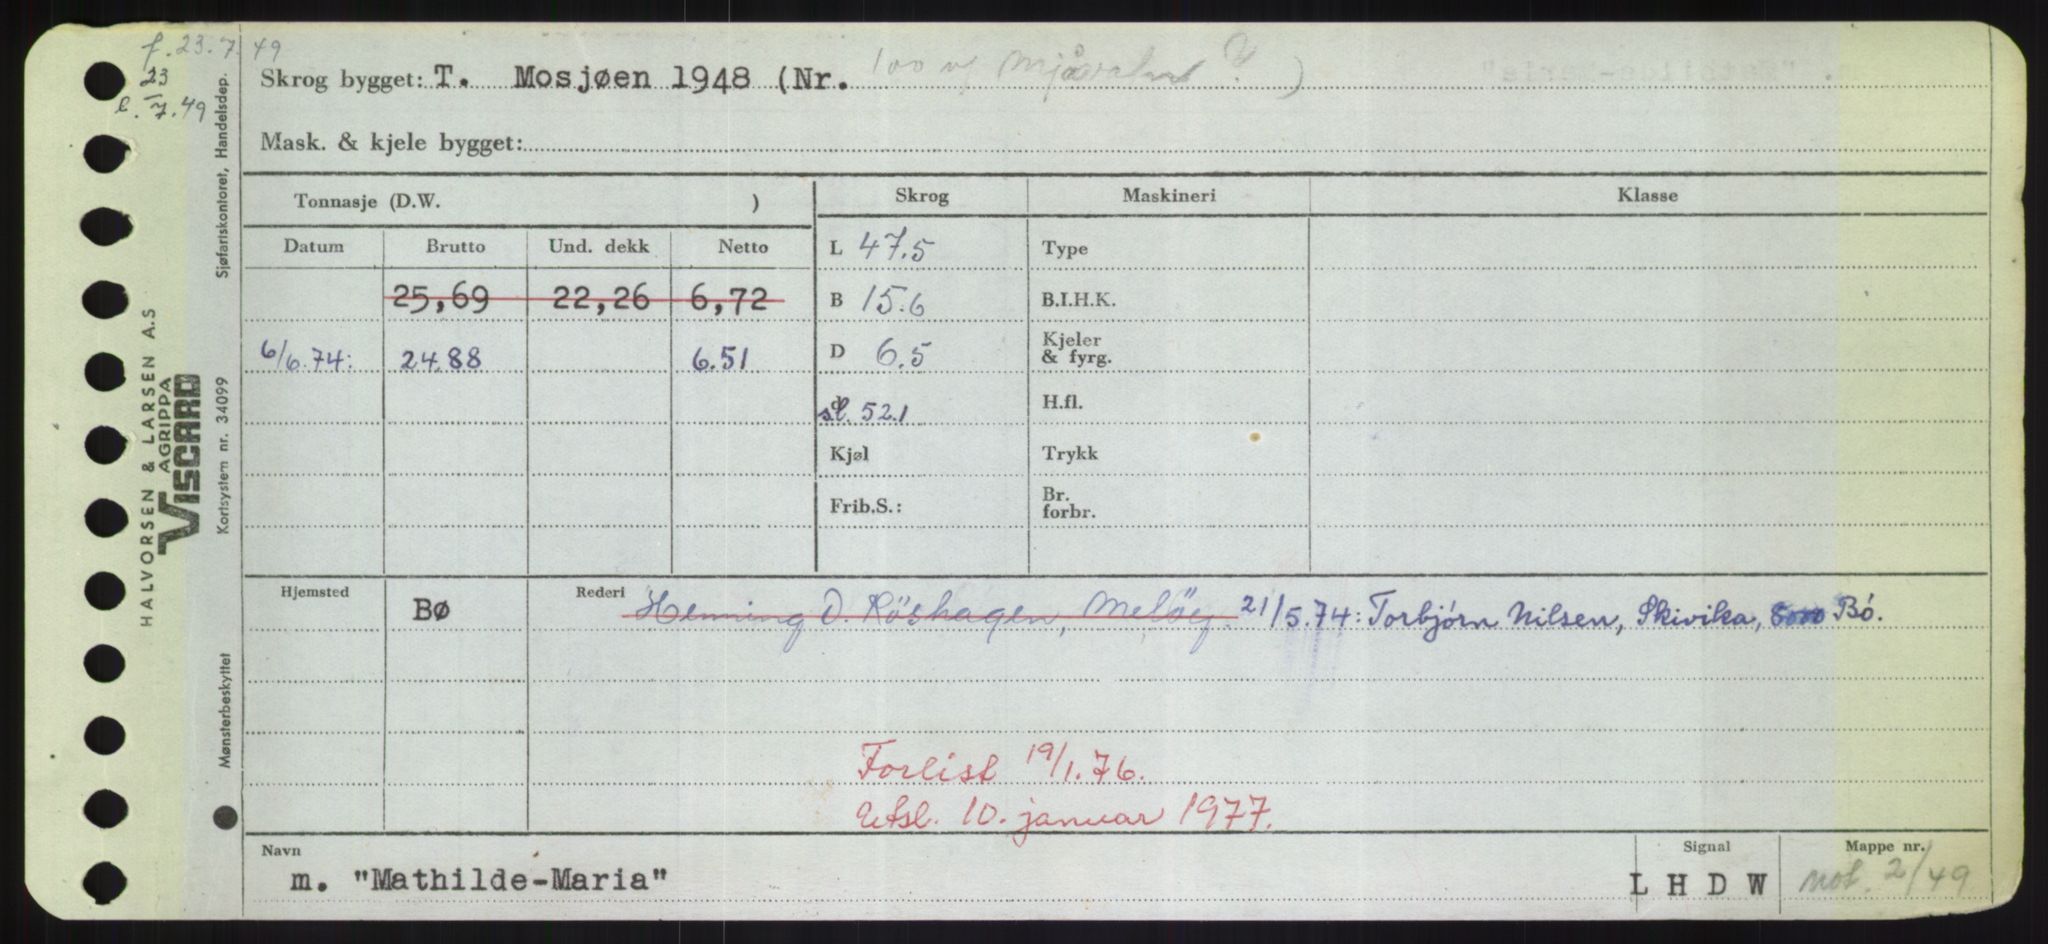 f. 23.7.49
23
l. 7.49
Skrog bygget: T. Mosjøen 1948 (Nr. )
Mask. & kjele bygget:
Tonnasje (D.W. )
Skrog Maskineri Klasse
Datum Brutto Und. dekk Netto
L 47.5 Type
25,69 22,26 6,72
B 15.6 B.I.H.K.
6/6.74: 24.88 6.51
D 6.5 Kjeler & fyrg.
d sl. 52.1 H.fl.
Kjøl Trykk
Frib.S.: Br. forbr.
Hjemsted Bø Rederi Henning D. Röshagen, 21/5.74: Torbjørn Nilsen, Skivika, Bó.
Forlist 19/1.76.
Utsl. 10. januar 1977.
Navn
m. "Mathilde-Maria"
Signal
L H D W
Mappe nr.
not. 2/49
HALVORSEN & LARSEN A.S
AGRIPPA
VISCARD
Sjøfartskontoret, Handelsdep.
Kortsystem nr. 34099
Mønsterbeskyttet